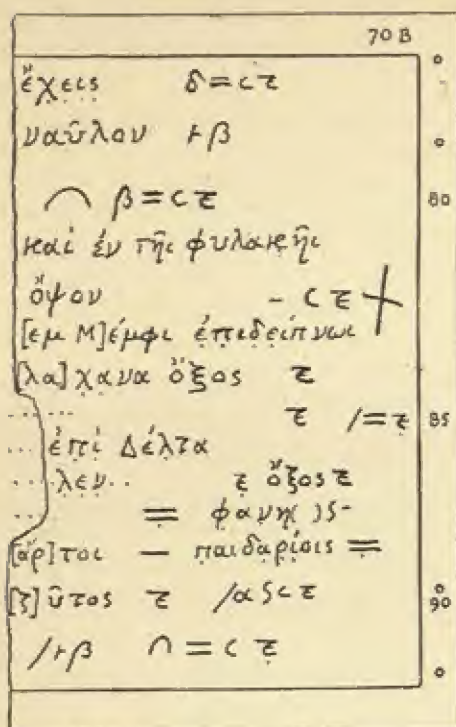 70 B
ἔχεις δ=ϲτ
ναῦλον ⊢β
80
⌒ β=ϲτ
καὶ ἐν τῆι φυλακῆι
ὄψον -ϲτ
[εμ Μ]έμφι ἐπιδείπνωι
[λα]χανα ὄξος τ
..... τ /=τ 85
... ἐπὶ Δέλτα
...λεν.. τ ὄξος τ
... = φανηχ
[ἄρ]τοι — παιδαρίοις =
[ζ]ῦτος τ /αςϲτ 90
/⊢β ∩=ϲτ